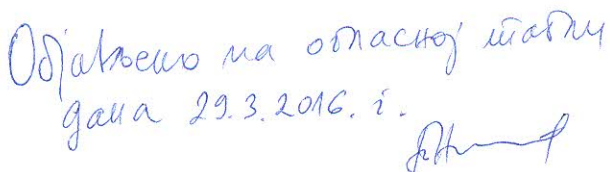 Објављено на огласној табли
дана 29.3.2016. г.